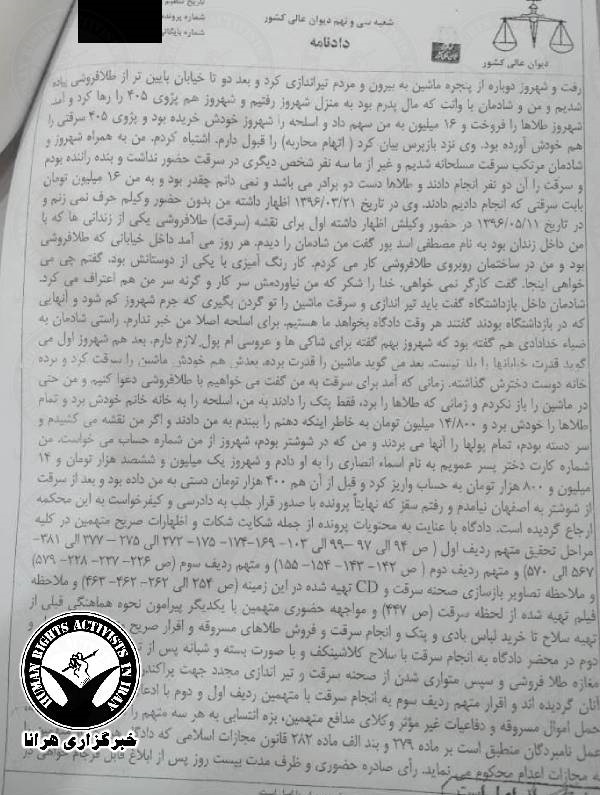 تاریخ تنظیم
شماره پرونده
شماره بایگانی
شعبه سی و نهم دیوان عالی کشور
دادنامه
دیوان عالی کشور
رفت و شهروز دوباره از پنجره ماشین به بیرون و مردم تیراندازی کرد و بعد دو تا خیابان پایین تر از طلافروشی پیاده
شدیم و من و شادمان با وانت که مال پدرم بود به منزل شهروز رفتیم و شهروز هم پژوی ۴۰۵ را رها کرد و آمد
شهروز طلاها را فروخت و ۱۶ میلیون به من سهم داد و اسلحه را شهروز خودش خریده بود و پژوی ۴۰۵ سرقتی را
هم خودش آورده بود. وی نزد بازپرس بیان کرد ( اتهام محاربه) را قبول دارم. اشتباه کردم. من به همراه شهروز و
شادمان مرتکب سرقت مسلحانه شدیم و غیر از ما سه نفر شخص دیگری در سرقت حضور نداشت و بنده راننده بودم
و سرقت را آن دو نفر انجام دادند و طلاها دست دو برادر می باشد و نمی دانم چقدر بود و به من ۱۶ میلیون تومان
بابت سرقتی که انجام دادیم دادند. وی در تاریخ ۱۳۹۶/۰۳/۲۱ اظهار داشته من بدون حضور وکیلم حرف نمی زنم و
در تاریخ ۱۳۹۶/۰۵/۱۱ در حضور وکیلش اظهار داشته اول برای نقشه (سرقت) طلافروشی یکی از زندانی ها که با
من داخل زندان بود به نام مصطفی اسد پور گفت من شادمان را دیدم. هر روز می آمد داخل خیابانی که طلافروشی
بود و من در ساختمان روبروی طلافروشی کار می کردم. کار رنگ آمیزی با یکی از دوستانش بود. گفتم چی می
خواهی اینجا. گفت کارگر نمی خواهی. خدا را شکر که من نیاوردمش سر کار و گرنه سر من هم اعتراف می کرد.
شادمان داخل بازداشتگاه گفت باید تیر اندازی و سرقت ماشین را تو گردن بگیری که جرم شهروز کم شود و آنهایی
که در بازداشتگاه بودند گفتند هر وقت دادگاه بخواهد ما هستیم. برای اسلحه اصلا من خبر ندارم. راستی شادمان به
ضیاء خدادادی هم گفته بود که شهروز بهم گفته برای شاکی ها و عروسی ام پول لازم دارم. بعد هم شهروز اول می
گوید قدرت خیابانها را بلد نیست. بعد می گوید ماشین را قدرت برده. بعدش هم خودش ماشین را سرقت کرد و برده
خانه دوست دخترش گذاشته. زمانی که آمد برای سرقت به من گفت می خواهیم با طلافروشی دعوا کنیم و من حتی
در ماشین را باز نکردم و زمانی که طلاها را برد، فقط پتک را دادند به من، اسلحه را به خانه خانم خودش برد و تمام
طلاها را خودش برد و ۱۴/۸۰۰ میلیون تومان به خاطر اینکه دهنم را ببندم به من دادند و اگر من نقشه می کشیدم و
سر دسته بودم، تمام پولها را آنها می بردند و من که در شوشتر بودم، شهروز از من شماره حساب می خواست. من
شماره کارت دختر پسر عمویم به نام اسماء انصاری را به او دادم و شهروز یک میلیون و ششصد هزار تومان و ۱۴
میلیون و ۸۰۰ هزار تومان به حساب واریز کرد و قبل از آن هم ۴۰۰ هزار تومان دستی به من داده بود و بعد از سرقت
از شوشتر به اصفهان نیامدم و رفتم سقز که نهایتاً پرونده با صدور قرار جلب به دادرسی و کیفرخواست به این محکمه
ارجاع گردیده است. دادگاه با عنایت به محتویات پرونده از جمله شکایت شکات و اظهارات صریح متهمین در کلیه
مراحل تحقیق متهم ردیف اول ( ص ۹۴ الی ۹۷ –۹۹ الی ۱۰۳– ۱۶۹–۱۷۴– ۱۷۵– ۲۷۲ الی ۲۷۵ – ۲۷۷ الی ۳۸۱–
۵۶۷ الی ۵۷۰) و متهم ردیف دوم ( ص ۱۴۲– ۱۴۳– ۱۵۴– ۱۵۵) و متهم ردیف سوم (ص ۲۲۶– ۲۳۷– ۲۲۸– ۵۷۹)
و ملاحظه تصاویر بازسازی صحنه سرقت و CD تهیه شده در این زمینه (ص ۲۵۴ الی ۲۶۲– ۴۶۲– ۴۶۳) و ملاحظه
فیلم تهیه شده از لحظه سرقت (ص ۴۴۷) و مواجهه حضوری متهمین با یکدیگر پیرامون نحوه هماهنگی قبلی از
تهیه سلاح تا خرید لباس بادی و پتک و انجام سرقت و فروش طلاهای مسروقه و اقرار صریح
دوم در محضر دادگاه به انجام سرقت با سلاح کلاشینکف و با صورت بسته و شبانه پس از
مغازه طلا فروشی و سپس متواری شدن از صحنه سرقت و تیر اندازی مجدد جهت پراکند
آنان گردیده اند و اقرار متهم ردیف سوم به انجام سرقت با متهمین ردیف اول و دوم با ادعا
حمل اموال مسروقه و دفاعیات غیر مؤثر وکلای مدافع متهمین، بزه انتسابی به هر سه متهم را
عمل نامبردگان منطبق است بر ماده ۲۷۹ و بند الف ماده ۲۸۲ قانون مجازات اسلامی که دادگاه
به مجازات اعدام محکوم می نماید. رأی صادره حضوری و ظرف مدت بیست روز پس از ابلاغ قابل فرجام خواهی در
HUMAN RIGHTS ACTIVISTS IN IRAN
خبرگزاری هرانا